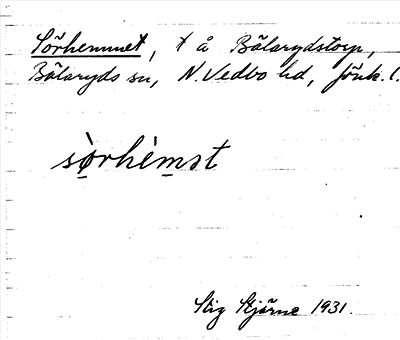 Sörhemmet, t å Bälarydstorp,
Bälaryds sn, N. Vedbo hd, Jönk. l.
sò̤rhém̠st
Stig Stjärne 1931.